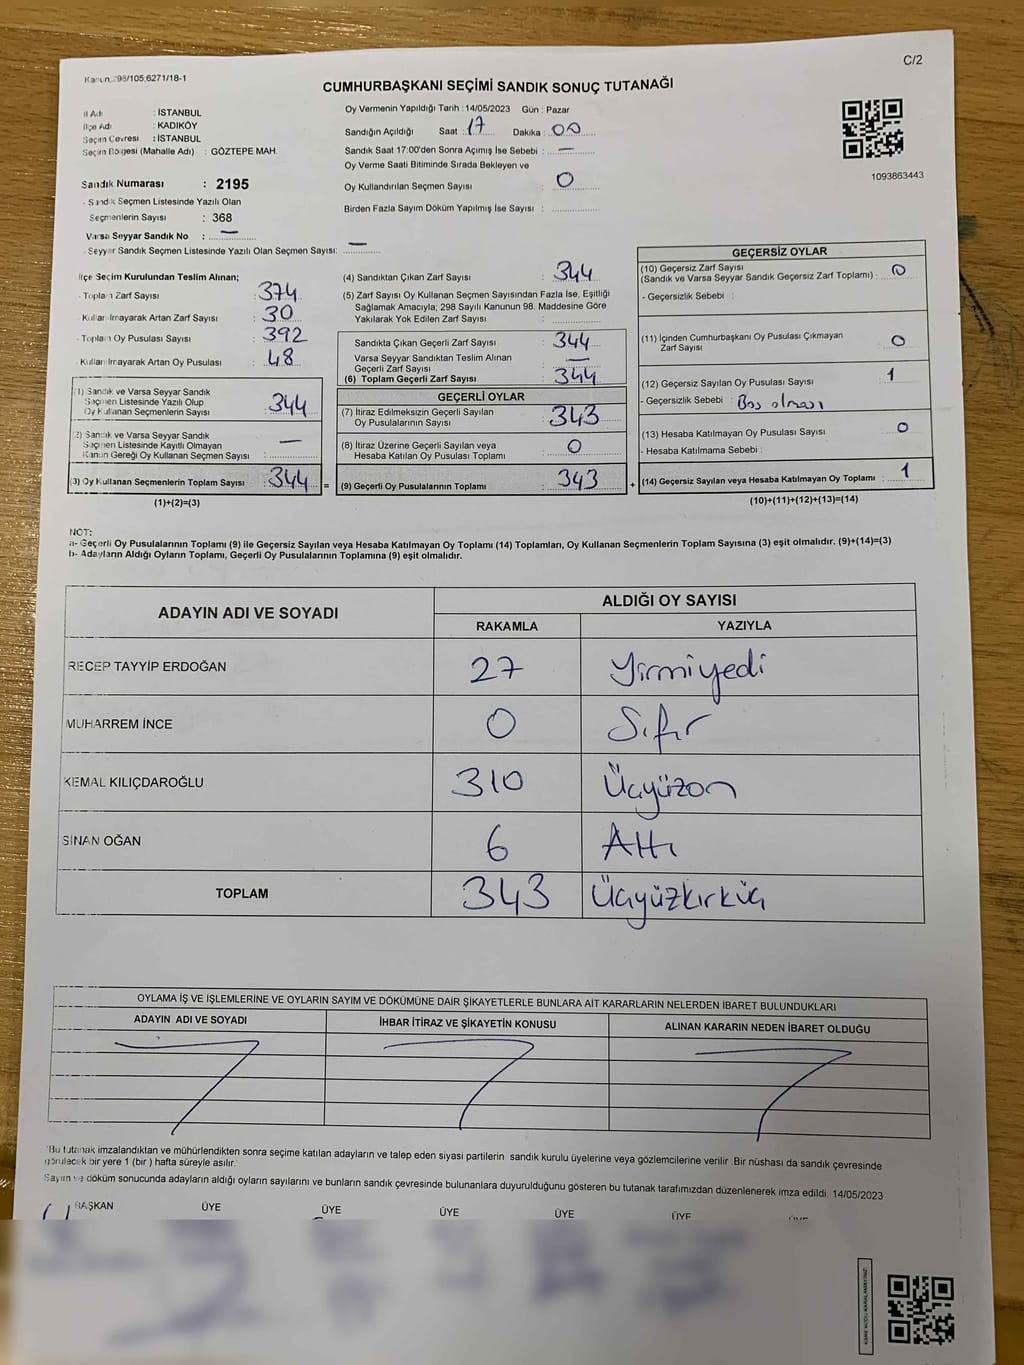 C/2
Kanun:298/105;6271/18-1
CUMHURBAŞKANI SEÇİMİ SANDIK SONUÇ TUTANAĞI
İl Adı : İSTANBUL
İlçe Adı : KADIKÖY
Seçim Çevresi : İSTANBUL
Seçim Bölgesi (Mahalle Adı) : GÖZTEPE MAH.
Sandık Numarası : 2195
- Sandık Seçmen Listesinde Yazılı Olan
Seçmenlerin Sayısı : 368
Varsa Seyyar Sandık No : —
- Seyyar Sandık Seçmen Listesinde Yazılı Olan Seçmen Sayısı: —
Oy Vermenin Yapıldığı Tarih : 14/05/2023 Gün : Pazar
Sandığın Açıldığı Saat : 17 Dakika : 00
Sandık Saat 17:00'den Sonra Açımış İse Sebebi : —
Oy Verme Saati Bitiminde Sırada Bekleyen ve
Oy Kullandırılan Seçmen Sayısı : 0
Birden Fazla Sayım Döküm Yapılmış İse Sayısı :
1093863443
İlçe Seçim Kurulundan Teslim Alınan;
- Toplam Zarf Sayısı : 374
- Kullanılmayarak Artan Zarf Sayısı : 30
- Toplam Oy Pusulası Sayısı : 392
- Kullanılmayarak Artan Oy Pusulası : 48
(1) Sandık ve Varsa Seyyar Sandık
Seçmen Listesinde Yazılı Olup
Oy Kullanan Seçmenlerin Sayısı : 344
(2) Sandık ve Varsa Seyyar Sandık
Seçmen Listesinde Kayıtlı Olmayan
Kanun Gereği Oy Kullanan Seçmen Sayısı : —
(3) Oy Kullanan Seçmenlerin Toplam Sayısı : 344 =
(1)+(2)=(3)
(4) Sandıktan Çıkan Zarf Sayısı : 344
(5) Zarf Sayısı Oy Kullanan Seçmen Sayısından Fazla İse, Eşitliği
Sağlamak Amacıyla; 298 Sayılı Kanunun 98. Maddesine Göre
Yakılarak Yok Edilen Zarf Sayısı :
Sandıkta Çıkan Geçerli Zarf Sayısı : 344
Varsa Seyyar Sandıktan Teslim Alınan
Geçerli Zarf Sayısı : —
(6) Toplam Geçerli Zarf Sayısı : 344
GEÇERLİ OYLAR
(7) İtiraz Edilmeksizin Geçerli Sayılan
Oy Pusulalarının Sayısı : 343
(8) İtiraz Üzerine Geçerli Sayılan veya
Hesaba Katılan Oy Pusulaları Toplamı : 0
(9) Geçerli Oy Pusulalarının Toplamı : 343 +
GEÇERSİZ OYLAR
(10) Geçersiz Zarf Sayısı
(Sandık ve Varsa Seyyar Sandık Geçersiz Zarf Toplamı) : 0
- Geçersizlik Sebebi :
(11) İçinden Cumhurbaşkanı Oy Pusulası Çıkmayan
Zarf Sayısı : 0
(12) Geçersiz Sayılan Oy Pusulası Sayısı : 1
- Geçersizlik Sebebi : Boş olması
(13) Hesaba Katılmayan Oy Pusulası Sayısı : 0
- Hesaba Katılmama Sebebi :
(14) Geçersiz Sayılan veya Hesaba Katılmayan Oy Toplamı : 1
(10)+(11)+(12)+(13)=(14)
NOT:
a- Geçerli Oy Pusulalarının Toplamı (9) ile Geçersiz Sayılan veya Hesaba Katılmayan Oy Toplamı (14) Toplamları, Oy Kullanan Seçmenlerin Toplam Sayısına (3) eşit olmalıdır. (9)+(14)=(3)
b- Adayların Aldığı Oyların Toplamı, Geçerli Oy Pusulalarının Toplamına (9) eşit olmalıdır.
ADAYIN ADI VE SOYADI
ALDIĞI OY SAYISI
RAKAMLA YAZIYLA
RECEP TAYYİP ERDOĞAN 27 Yirmiyedi
MUHARREM İNCE 0 Sıfır
KEMAL KILIÇDAROĞLU 310 Üçyüzon
SİNAN OĞAN 6 Altı
TOPLAM 343 Üçyüzkırküç
OYLAMA İŞ VE İŞLEMLERİNE VE OYLARIN SAYIM VE DÖKÜMÜNE DAİR ŞİKAYETLERLE BUNLARA AİT KARARLARIN NELERDEN İBARET BULUNDUKLARI
ADAYIN ADI VE SOYADI İHBAR İTİRAZ VE ŞİKAYETİN KONUSU ALINAN KARARIN NEDEN İBARET OLDUĞU
*Bu tutanak imzalandıktan ve mühürlendikten sonra seçime katılan adayların ve talep eden siyasi partilerin sandık kurulu üyelerine veya gözlemcilerine verilir. Bir nüshası da sandık çevresinde
görülecek bir yere 1 (bir) hafta süreyle asılır.
Sayım ve döküm sonucunda adayların aldığı oyların sayılarını ve bunların sandık çevresinde bulunanlara duyurulduğunu gösteren bu tutanak tarafımızdan düzenlenerek imza edildi. 14/05/2023
BAŞKAN ÜYE ÜYE ÜYE ÜYE ÜYE ÜYE